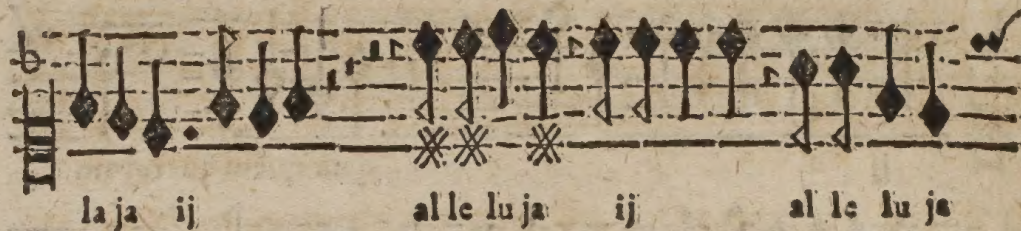 la ja ij al le lu ja ij al le lu ja